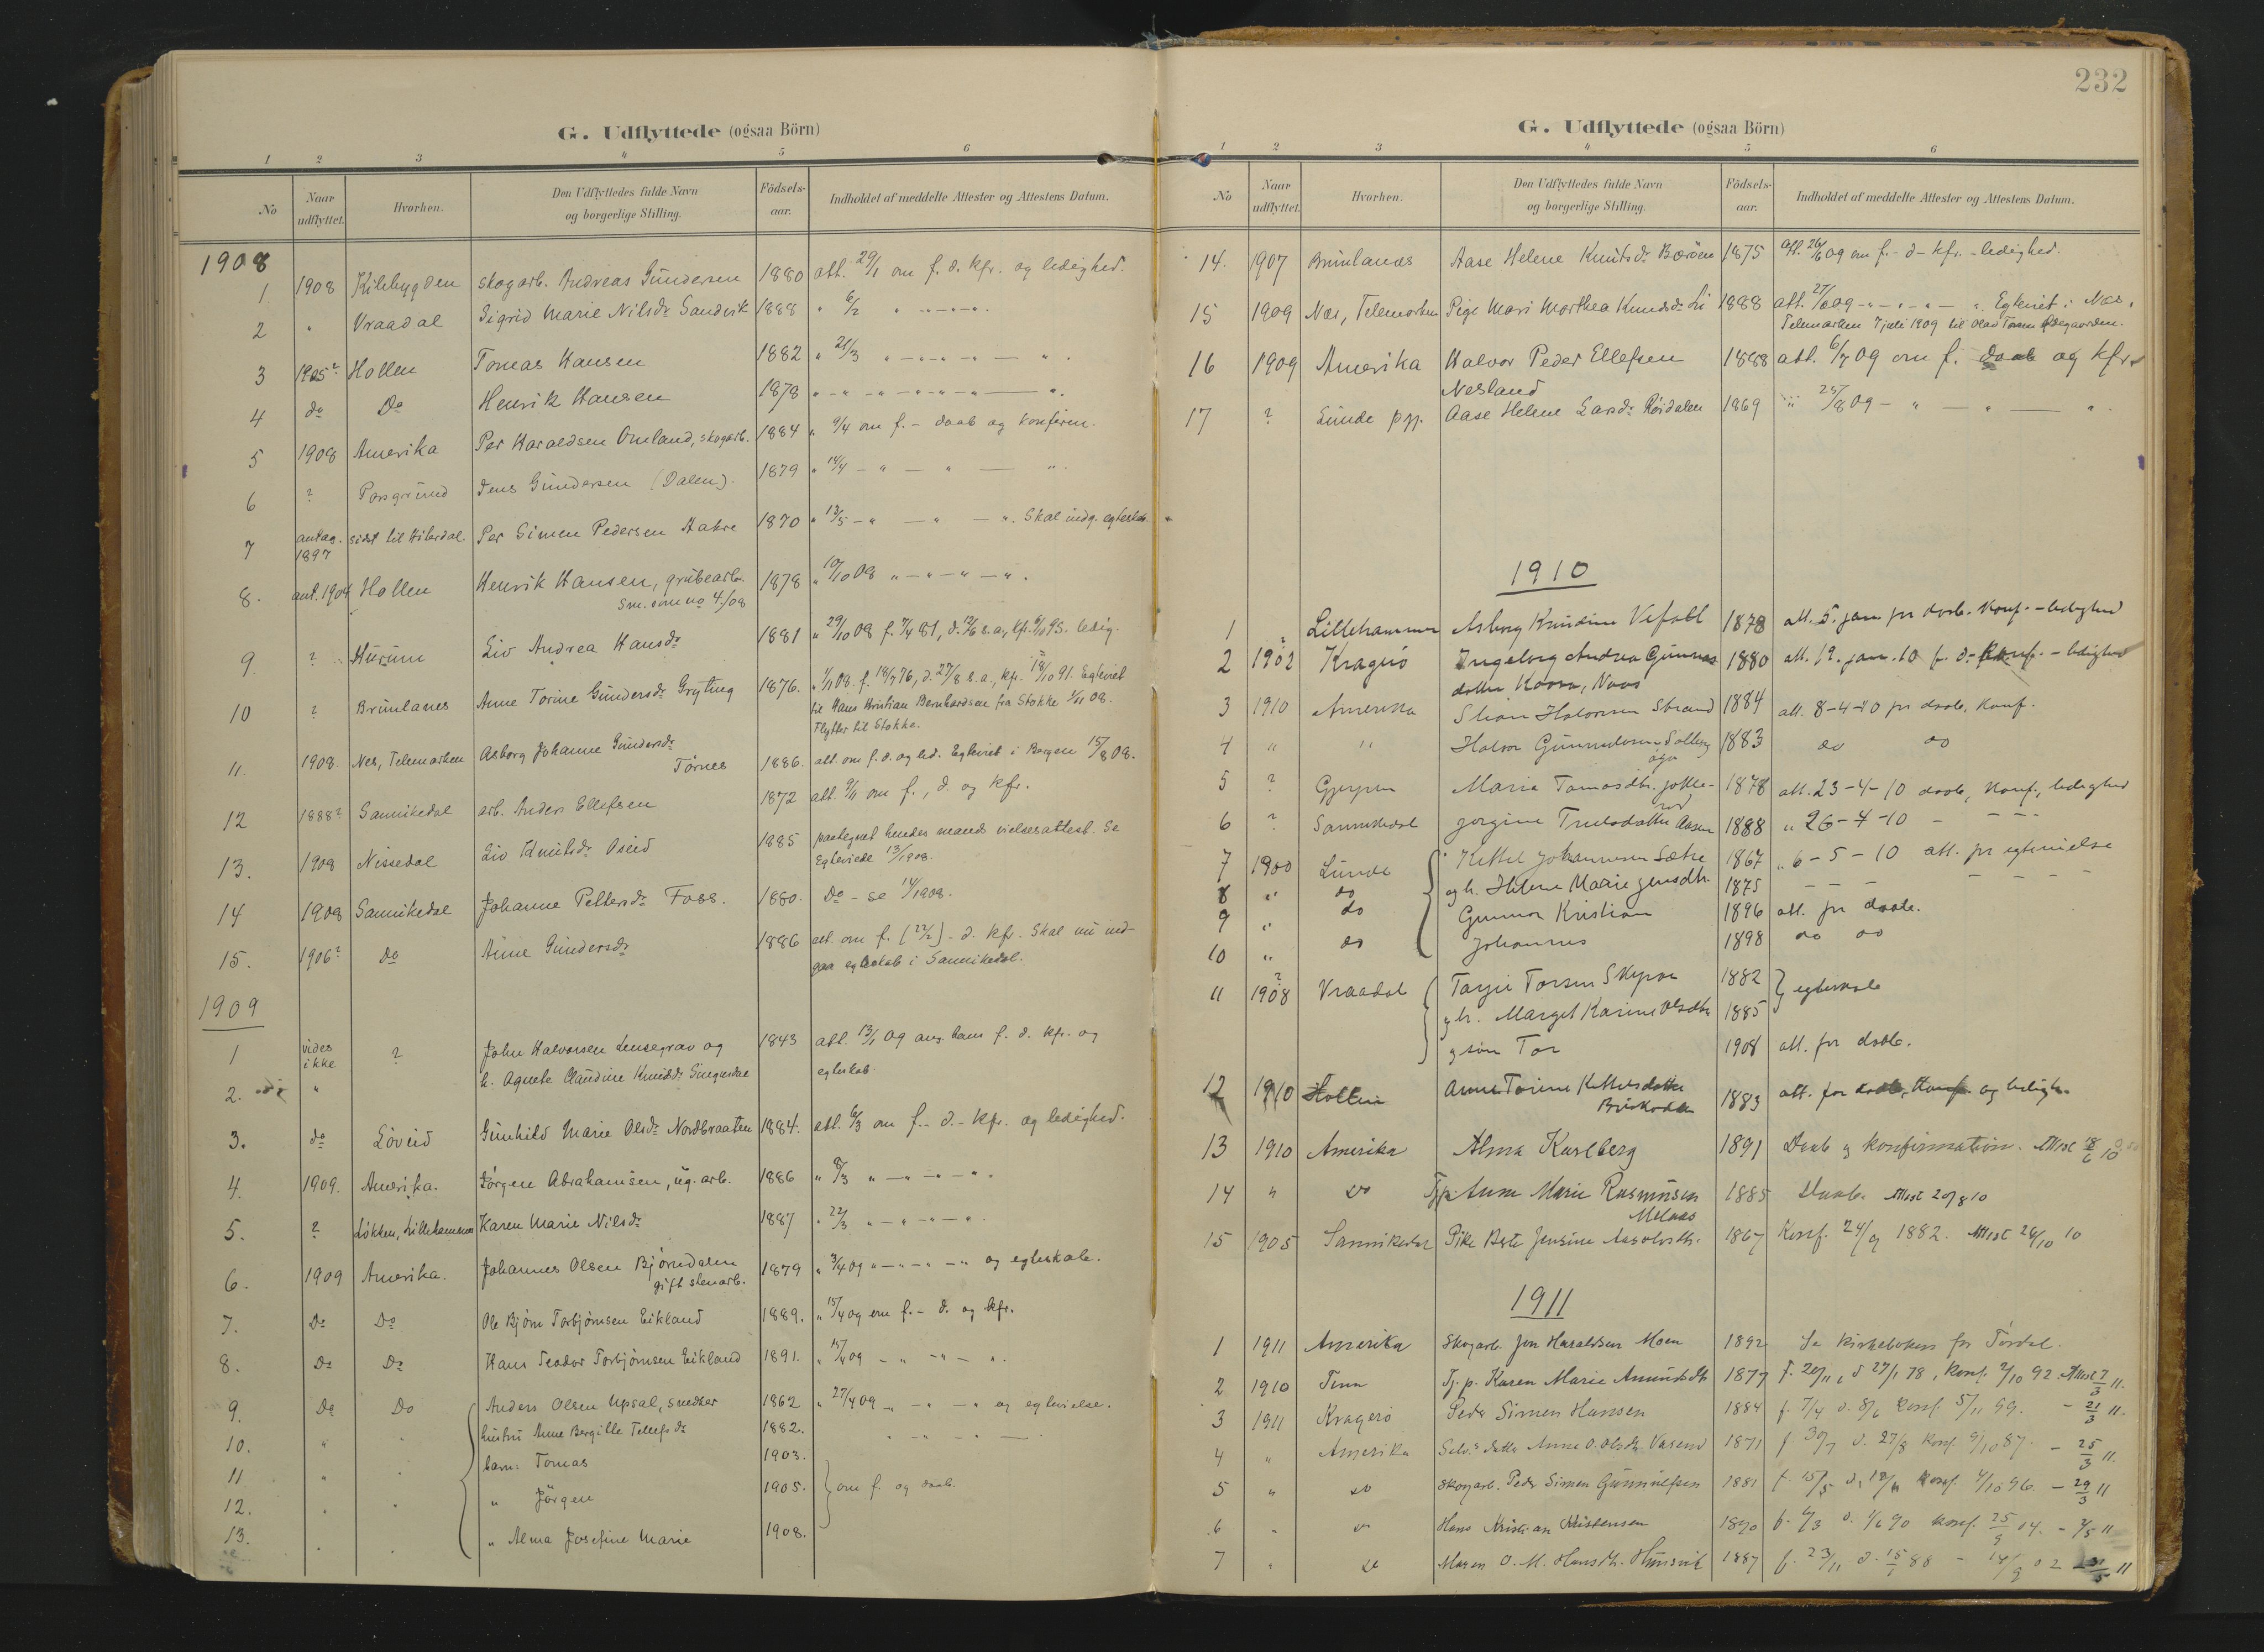 G. Udflyttede (ogsaa Börn)
1 2 3 4 5 6
No Naar udflyttet. Hvorhen. Den Udflyttedes fulde Navn og borgerlige Stilling. Födsels-aar. Indholdet af meddelte Attester og Attestens Datum.
1908
1. 1908 Kilebygden skogarb. Andreas Gundersen 1880 att. 29/1 om f. d. kfr. og ledighed.
2 " Vraadal Sigrid Marie Nilsdr Sandvik 1888 " 6/2 " - " - " - ".
3 1905? Hollen Tomas Hansen 1882 " 21/3 " - " - " - ".
4 do Do Henrik Hansen 1878 " - " - " - " - ".
5 1908 Amerika Per Haraldsen Omland, skogarb. 1884 " 9/4 om f. - daab og konfirm.
6 ? Porsgrund Jens Gundersen (Dalen). 1879 " 14/4 - " - " - ".
7 antag. 1897 sidst til Hiterdal. Per Simen Pedersen Aakre 1870 " 13/5 - " - " - ". Skal indg. egteskab.
8. ant. 1904 Hollen Henrik Hansen, grubearb. 1878 " 10/10 08 " - " - " - ".
Sm. som no 4./08
9 ? Hurum Liv Andrea Hansdr 1881 " 29/10 08 f. 7/4 81, d. 12/6 s. a., kfr. 6/10 95. ledig.
10 ? Brunlanes Anne Torine Gundersdr Gryting 1876. " 1/11 08. f. 18/7 76, d. 27/8 s. a., kfr. 18/10 91. Egteviet
til Hans Kristian Bernhardsen fra Stokke 1/11 08.
Flytter til Stokke.
11. 1908. Nes, Telemarken Asborg Johanne Gundersdr Törnes 1886. att. om f. d. og led. Egteviet i Bergen 15/8 08.
12 1888? Sannikedal arb. Anders Ellefsen 1872 att. 9/11 om f., d. og kfr.
13. 1908 Nissedal Liv Knutsdr Oseid 1885 paategnet hendes mands vielsesattest. Se
Egteviede 13/1908.
14 1908 Sannikedal Johanne Pettersdr Foss. 1880. Do - se 14/1908.
15. 1906? Do Anne Gundersdr 1886 att. om f. (22/2) - d. kfr. Skal nu ind-
gaa egteskab i Sannikedal.
1909
1 vides ikke ? John Halvorsen Lensegrav og 1843 att. 13/1 09 ang. hans f. d. kfr. og
2. " h. Agnete Claudine Knutsdr egteskab.
3. do Löveid Gunhild Marie Olsdr Nordbraaten 1884. att. 6/3 om f. - d. - kfr. og ledighed.
4. 1909. Amerika. Jörgen Abrahamsen, ug. arb. 1886 " 8/3 " - " - " - ".
5. ? Lökken, Lillehammer Karen Marie Nilsdr 1887 " 22/3 " - " - " - ".
6. 1909 Amerika. Johannes Olsen Björndalen 1879 " 3/4 09 " - " - " - " og egteskab.
gift stenarb.
7. Do Do Ole Björn Torbjörnsen Eikland 1889. " 15/4 09 om f. - d. og kfr.
8. Do Do Hans Teodor Torbjörnsen Eikland 1891. " 15/4 09 - " - " - ".
9. Do Do Anders Olsen Upsal, snedker 1862 " 27/4 09 - " - " - " og egtevielse.
10. " " hustru Anne Bergitte Tellefsdr 1882. " - " - " - "
11 " " barn: Tomas 1903.
12. " " " Jörgen 1905. om f. og daab.
13. " " " Alma Josefine Marie 1908.
232
G. Udflyttede (ogsaa Börn)
1 2 3 4 5 6
No Naar udflyttet. Hvorhen. Den Udflyttedes fulde Navn og borgerlige Stilling. Födsels-aar. Indholdet af meddelte Attester og Attestens Datum.
14. 1907 Brunlanæs Aase Helene Knutsdr Baröen 1875 att. 26/6 09 om f. - d - kfr. - ledighed.
15 1909 Næs, Telemarken Pige Mari Marthea Knudsdr Li 1888 att. 27/6 09 - " - " - " - ". Egteviet i Nes,
Telemarken 7 juli 1909 til Olav Torsen Ödegaarden.
16 1909 Amerika Halvor Peder Ellefsen 1888 att. 6/7 09 om f. daab og kfr.
Nesland
17 ? Lunde pgj. Aase Helene Larsdr Röisdalen 1869 " 25/8 09 - " - " - ".
1910
1 ? Lillehammer Asborg Knudine Vefall 1878 att. 5. jan for daab. Konf. - ledighed
2 1902? Kragerö Ingeborg Andrea Gunnars 1880 att. 19. jan. 10 f. d. - Konf. - ledighed
datter Kaasa, Naas
3 1910 Amerika Halvorsen Strand 1884 att. 8-4-10 for daab. Konf.
4 " " Halvor Gunnulvsen Solberg 1883 do do
5 ? Gjerpen Maria Tomasdtr. 1878 att. 23-4-10 daab, Konf., ledighed
6 ? Sannikedal Jorgine Trulsdatter Aasen 1888 " 26-4-10 - - - -
7 1900 Lunde Kittel Johannessen Sætre 1867 " 6-5-10 att. for egtevielse
8 " do og h. Helene Marie Jensdtr. 1875 - - - - - - -
9 " do Gunnar Kristian 1896 att. for daab.
10 " do Johannes 1898 do do
11 1908? Vraadal Tarjei Torsen 1882 egteskab
og h. Marget Karine Olsdtr 1885
og sön Tor 1908 att. for daab.
12 1910 Hollen Anne Torine Kittelsdatter 1883 att. for daab, Konf. og ledigh.
13 1910 Amerika Alma Karlberg 1891 Daab og konfirmation. Attest 18/6 10
14 " do Tjp. Anna Marie Rasmusen 1885 Daab. Attest 20/8 10
Melaas
15 1905 Sannikedal Pike Berte Jensine 1867 Konf. 24/9 1882. Attest 26/10 10
1911
1 1911 Amerika Skogarb. Jon Haraldsen Moen 1892 Se kirkeboken for Tördal.
2 1910 Tj. p. Karen Marie Amundsdtr 1877 f. 20/11, d 27/1 78, konf. 2/10 92 Attest 7/3 11.
3 1911 Kragerö Peder Simen Hansen 1884 f. 7/4 d. 8/6 konf. 5/11 99. - 21/3 11.
4 " Amerika Anne O. Olsdtr. 1871 f 30/7 d. 27/8 konf. 9/10 87. - 25/3 11.
5 " do Skogarb. Peder Simen Gunnulfsen 1881 f. 15/5 d. konf. 4/10 96. - 29/3 11
6 " do Hans Kristian Kristensen 1890 f. 9/3 d. 1/6 90 konf. 25/9 04. - 2/5 11
7 " do Maren O. M. Hansdtr. 1887 f. 23/11 d. 15/1 88 - 14/9 02 - 31/5 11